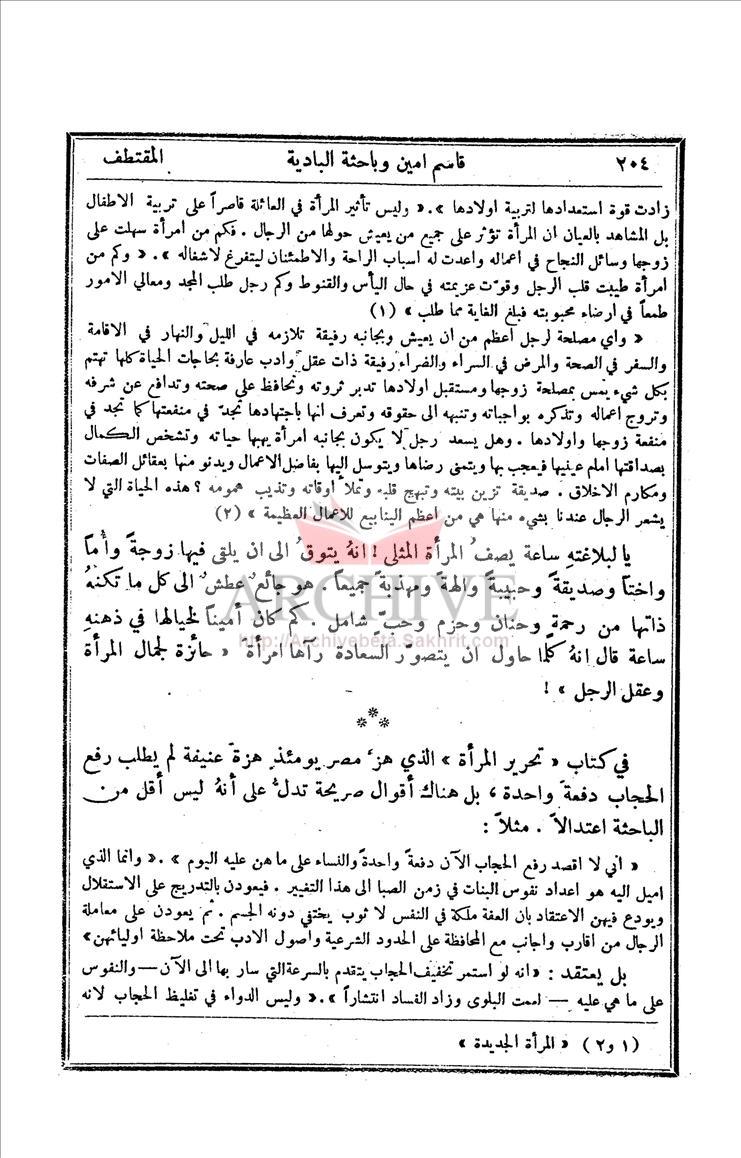 ٢٠٤ قاسم امين وباحثة البادية المقتطف
زادت قوة استعدادها لتربية اولادها ». « وليس تأثير المرأة في العائلة قاصراً على تربية الاطفال
بل المشاهد بالعيان ان المرأة تؤثر على جميع من يعيش حولها من الرجال . فكم من امرأة سهلت على
زوجها وسائل النجاح في اعماله واعدت له اسباب الراحة والاطمئنان ليتفرغ لاشغاله ». « وكم من
امرأة طيبت قلب الرجل وقوّت عزيمته في حال اليأس والقنوط وكم رجل طلب المجد ومعالي الامور
طمعاً في ارضاء محبوبته فبلغ الغاية مما طلب » (١)
« واي مصلحة لرجل اعظم من ان يعيش وبجانبه رفيقة تلازمه في الليل والنهار في الاقامة
والسفر في الصحة والمرض في السراء والضراء رفيقة ذات عقل وادب عارفة بحاجات الحياة كلها تهتم
بكل شيء يمس بمصلحة زوجها ومستقبل اولادها تدبر ثروته وتحافظ على صحته وتدافع عن شرفه
وتروج اعماله وتذكره بواجباته وتنبهه الى حقوقه وتعرف انها باجتهادها تجدّ في منفعتها كما تجد في
منفعة زوجها واولادها . وهل يسعد رجل لا يكون بجانبه امرأة يهبها حياته وتشخص الكمال
بصداقتها امام عينيها فيعجب بها ويتمنى رضاها ويتوسل اليها بفاضل الاعمال ويدنو منها بعقائل الصفات
ومكارم الاخلاق . صديقة تزين بيته وتبهج قلبه وتملأ اوقاته وتذيب همومه ؟ هذه الحياة التي لا
يشعر الرجال عندنا بشيء منها هي من اعظم الينابيع للاعمال العظيمة » (٢)
يا لبلاغتهِ ساعة يصفُ المرأة المثلى ! انهُ يتوقُ الى ان يلقى فيها زوجةً وأُماً
واختاً وصديقةً وحبيبةً وآلهةً ومهذبةً جميعاً . هو جائعٌ عطشٌ الى كل ما تكنهُ
ذاتها من رحمةٍ وحنان وحزم وحبٍّ شامل . كم كان أميناً لخيالها في ذهنهِ
ساعة قال انهُ كلما حاول ان يتصوّر السعادة رآها امرأة « حائزة لجمال المرأة
وعقل الرجل » !
⁂
في كتاب « تحرير المرأة » الذي هزَّ مصر يومئذٍ هزةً عنيفة لم يطلب رفع
الحجاب دفعةً واحدة ، بل هناك أقوال صريحة تدلُّ على أنهُ ليس أقل من
الباحثة اعتدالاً . مثلاً :
« اني لا اقصد رفع الحجاب الآن دفعةً واحدةً والنساء على ما هن عليه اليوم ». « وانما الذي
اميل اليه هو اعداد نفوس البنات في زمن الصبا الى هذا التغيير . فيعودن بالتدريج على الاستقلال
ويودع فيهن الاعتقاد بان العفة ملكة في النفس لا ثوب يختفي دونه الجسم . ثم يعودن على معاملة
الرجال من اقارب واجانب مع المحافظة على الحدود الشرعية واصول الادب تحت ملاحظة اوليائهن »
بل يعتقد : « انه لو استمر تخفيف الحجاب يتقدم بالسرعة التي سار بها الى الآن — والنفوس
على ما هي عليه — لعمت البلوى وزاد الفساد انتشاراً ». « وليس الدواء في تغليظ الحجاب لانه
(١ و٢) « المرأة الجديدة »
ARCHIVE
http://Archivebeta.Sakhrit.com